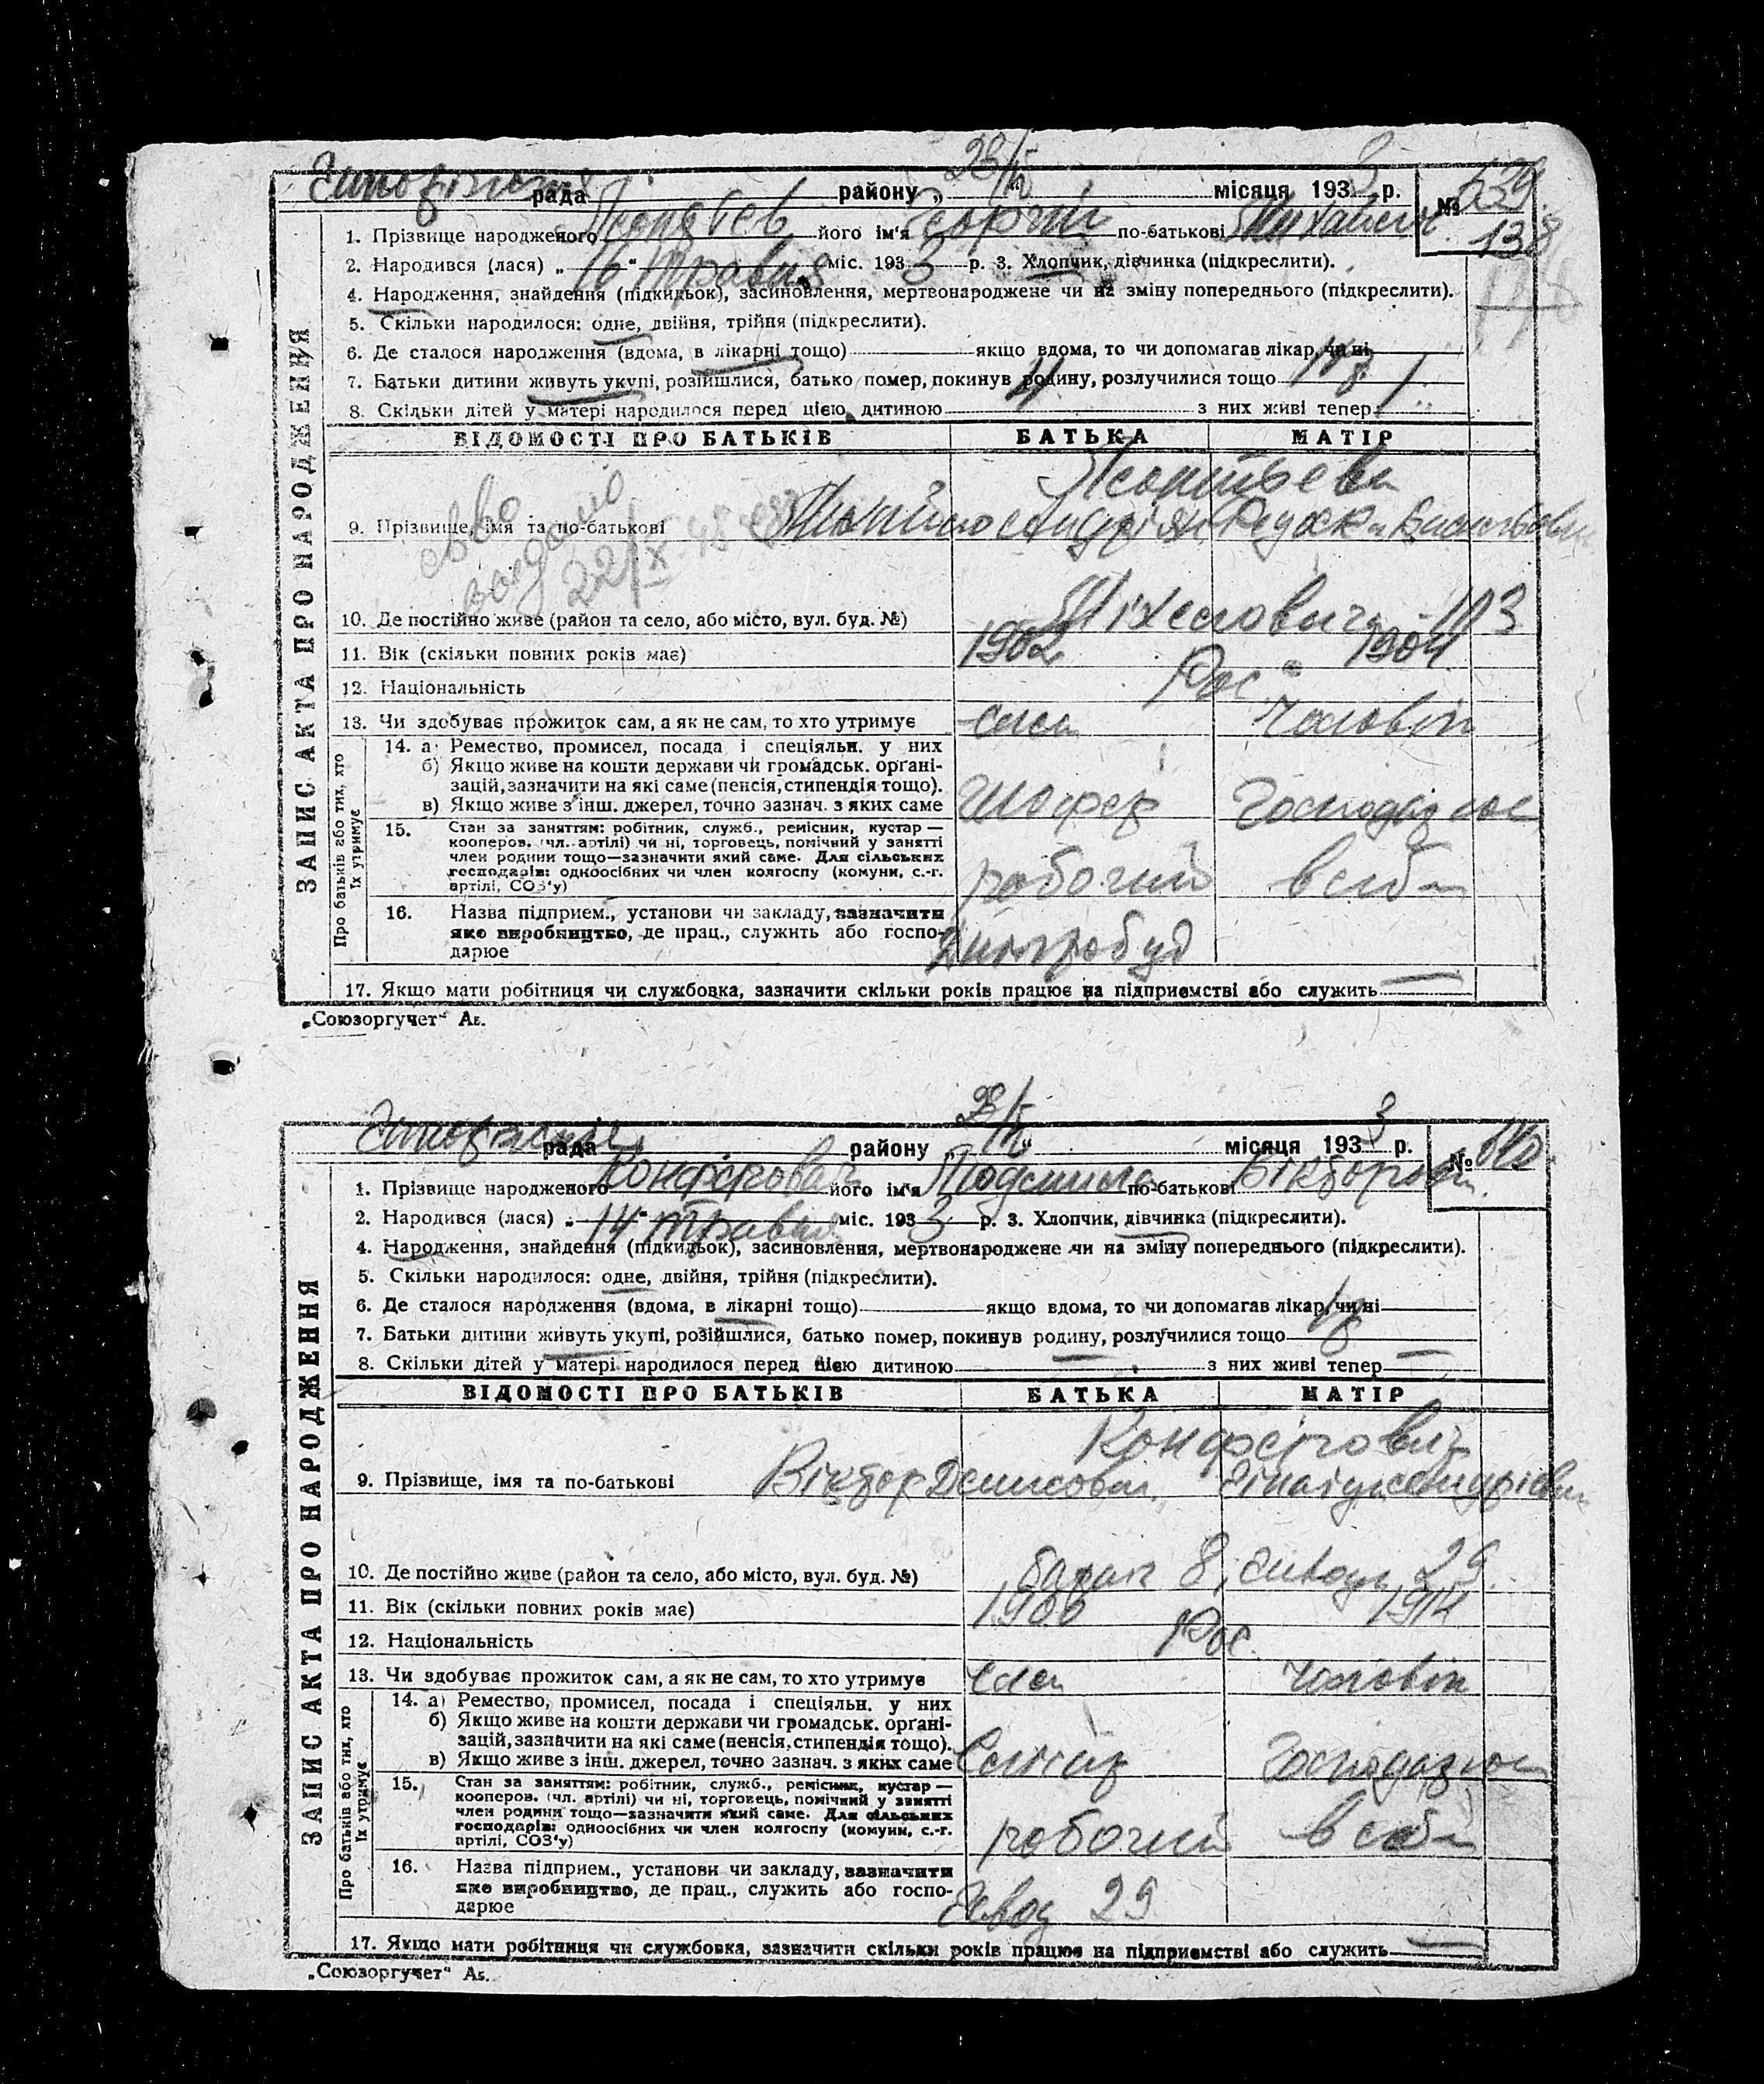 рада району „ 28/V “ місяця 1933 р. №
138
1. Прізвище народженого його ім'я Георгій по-батькові Михайлов.
2. Народився (лася) „ 16 “ травня міс. 1933 р. 3. Хлопчик, дівчинка (підкреслити).
4. Народження, знайдення (підкидьок), засиновлення, мертвонароджене чи на зміну попереднього (підкреслити).
5. Скільки народилося: одне, двійня, трійня (підкреслити).
6. Де сталося народження (вдома, в лікарні тощо) якщо вдома, то чи допомагав лікар, чи ні
7. Батьки дитини живуть укупі, розійшлися, батько помер, покинув родину, розлучилися тощо
8. Скільки дітей у матері народилося перед цією дитиною з них живі тепер
ЗАПИС АКТА ПРО НАРОДЖЕННЯ
ВІДОМОСТІ ПРО БАТЬКІВ БАТЬКА МАТІР
9. Прізвище, імя та по-батькові
10. Де постійно живе (район та село, або місто, вул. буд. №) 103
11. Вік (скільки повних років має) 1902 1904
12. Національність Рос.
13. Чи здобуває прожиток сам, а як не сам, то хто утримує сам чоловік
Про батьків або тих, хто їх утримує
14. а) Ремество, промисел, посада і спеціяльн. у них
б) Якщо живе на кошти держави чи громадськ. орґані-
зацій, зазначити на які саме (пенсія, стипендія тощо).
в) Якщо живе з інш. джерел, точно зазначн. з яких саме шофер
15. Стан за заняттям: робітник, служб., ремісник, кустар —
кооперов. (чл. артілі) чи ні, торговець, помічний у занятті
член родини тощо—зазначити який саме. Для сільських
господарів: одноосібних чи член колгоспу (комуни, с.-г.
артілі, СОЗ'у) робочий
16. Назва підприєм., установи чи закладу, зазначити
яке виробництво, де прац., служить або госпо-
дарює Дніпробуд
17. Якщо мати робітниця чи службовка, зазначити скільки років працює на підприємстві або служить
„Союзоргучет“ Ав.
рада району „ 28/V “ місяця 1933 р. №
1. Прізвище народженого його ім'я Людмила по-батькові Вікторовн.
2. Народився (лася) „ 14 “ травня міс. 1933 р. 3. Хлопчик, дівчинка (підкреслити).
4. Народження, знайдення (підкидьок), засиновлення, мертвонароджене чи на зміну попереднього (підкреслити).
5. Скільки народилося: одне, двійня, трійня (підкреслити).
6. Де сталося народження (вдома, в лікарні тощо) якщо вдома, то чи допомагав лікар, чи ні
7. Батьки дитини живуть укупі, розійшлися, батько помер, покинув родину, розлучилися тощо
8. Скільки дітей у матері народилося перед цією дитиною з них живі тепер
ЗАПИС АКТА ПРО НАРОДЖЕННЯ
ВІДОМОСТІ ПРО БАТЬКІВ БАТЬКА МАТІР
9. Прізвище, імя та по-батькові Віктор Денисович
10. Де постійно живе (район та село, або місто, вул. буд. №) барак 8, 29
11. Вік (скільки повних років має) 1906 1914
12. Національність Рос.
13. Чи здобуває прожиток сам, а як не сам, то хто утримує сам чоловік
Про батьків або тих, хто їх утримує
14. а) Ремество, промисел, посада і спеціяльн. у них
б) Якщо живе на кошти держави чи громадськ. орґані-
зацій, зазначити на які саме (пенсія, стипендія тощо).
в) Якщо живе з інш. джерел, точно зазначн. з яких саме
15. Стан за заняттям: робітник, служб., ремісник, кустар —
кооперов. (чл. артілі) чи ні, торговець, помічний у занятті
член родини тощо—зазначити який саме. Для сільських
господарів: одноосібних чи член колгоспу (комуни, с.-г.
артілі, СОЗ'у) робочий
16. Назва підприєм., установи чи закладу, зазначити
яке виробництво, де прац., служить або госпо-
дарює завод 29
17. Якщо мати робітниця чи службовка, зазначити скільки років працює на підприємстві або служить
„Союзоргучет“ Ав.